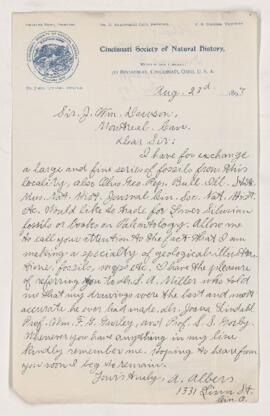 Cincinnati Society of Natural History,
108 Broadway, Cincinnati, Ohio, U. S. A.
Aug. 23d
Sir J. Wm. Dawson,
Montreal. Can.
Dear Sir:
I have for exchange
a large and fine series of fossils from this
locality, also Ohio Geo. Rep. Bull. Ill. State
Mus. Nat. Hist. Journal Cin. Soc. Nat. Hist.
&c. Would like to trade for Lower Silurian
fossils or books on Paleontology. Allow me
to call your attention to the fact that I am
making a specialty of geological illustra-
tions, fossils, maps etc. I have the pleasure
of referring you to Mr. S. A. Miller who told
me that my drawings were the best and most
accurate he ever had made, Mr. Josua Lindahl
Prof. Wm. F. E. Gurley, and Prof. S. S. Gorby
Whenever you have anything in my line
kindly remember me. Hoping to hear from
you soon I beg to remain.
Yours truly, A. Albers
1331 Linn St.
Cin. O.